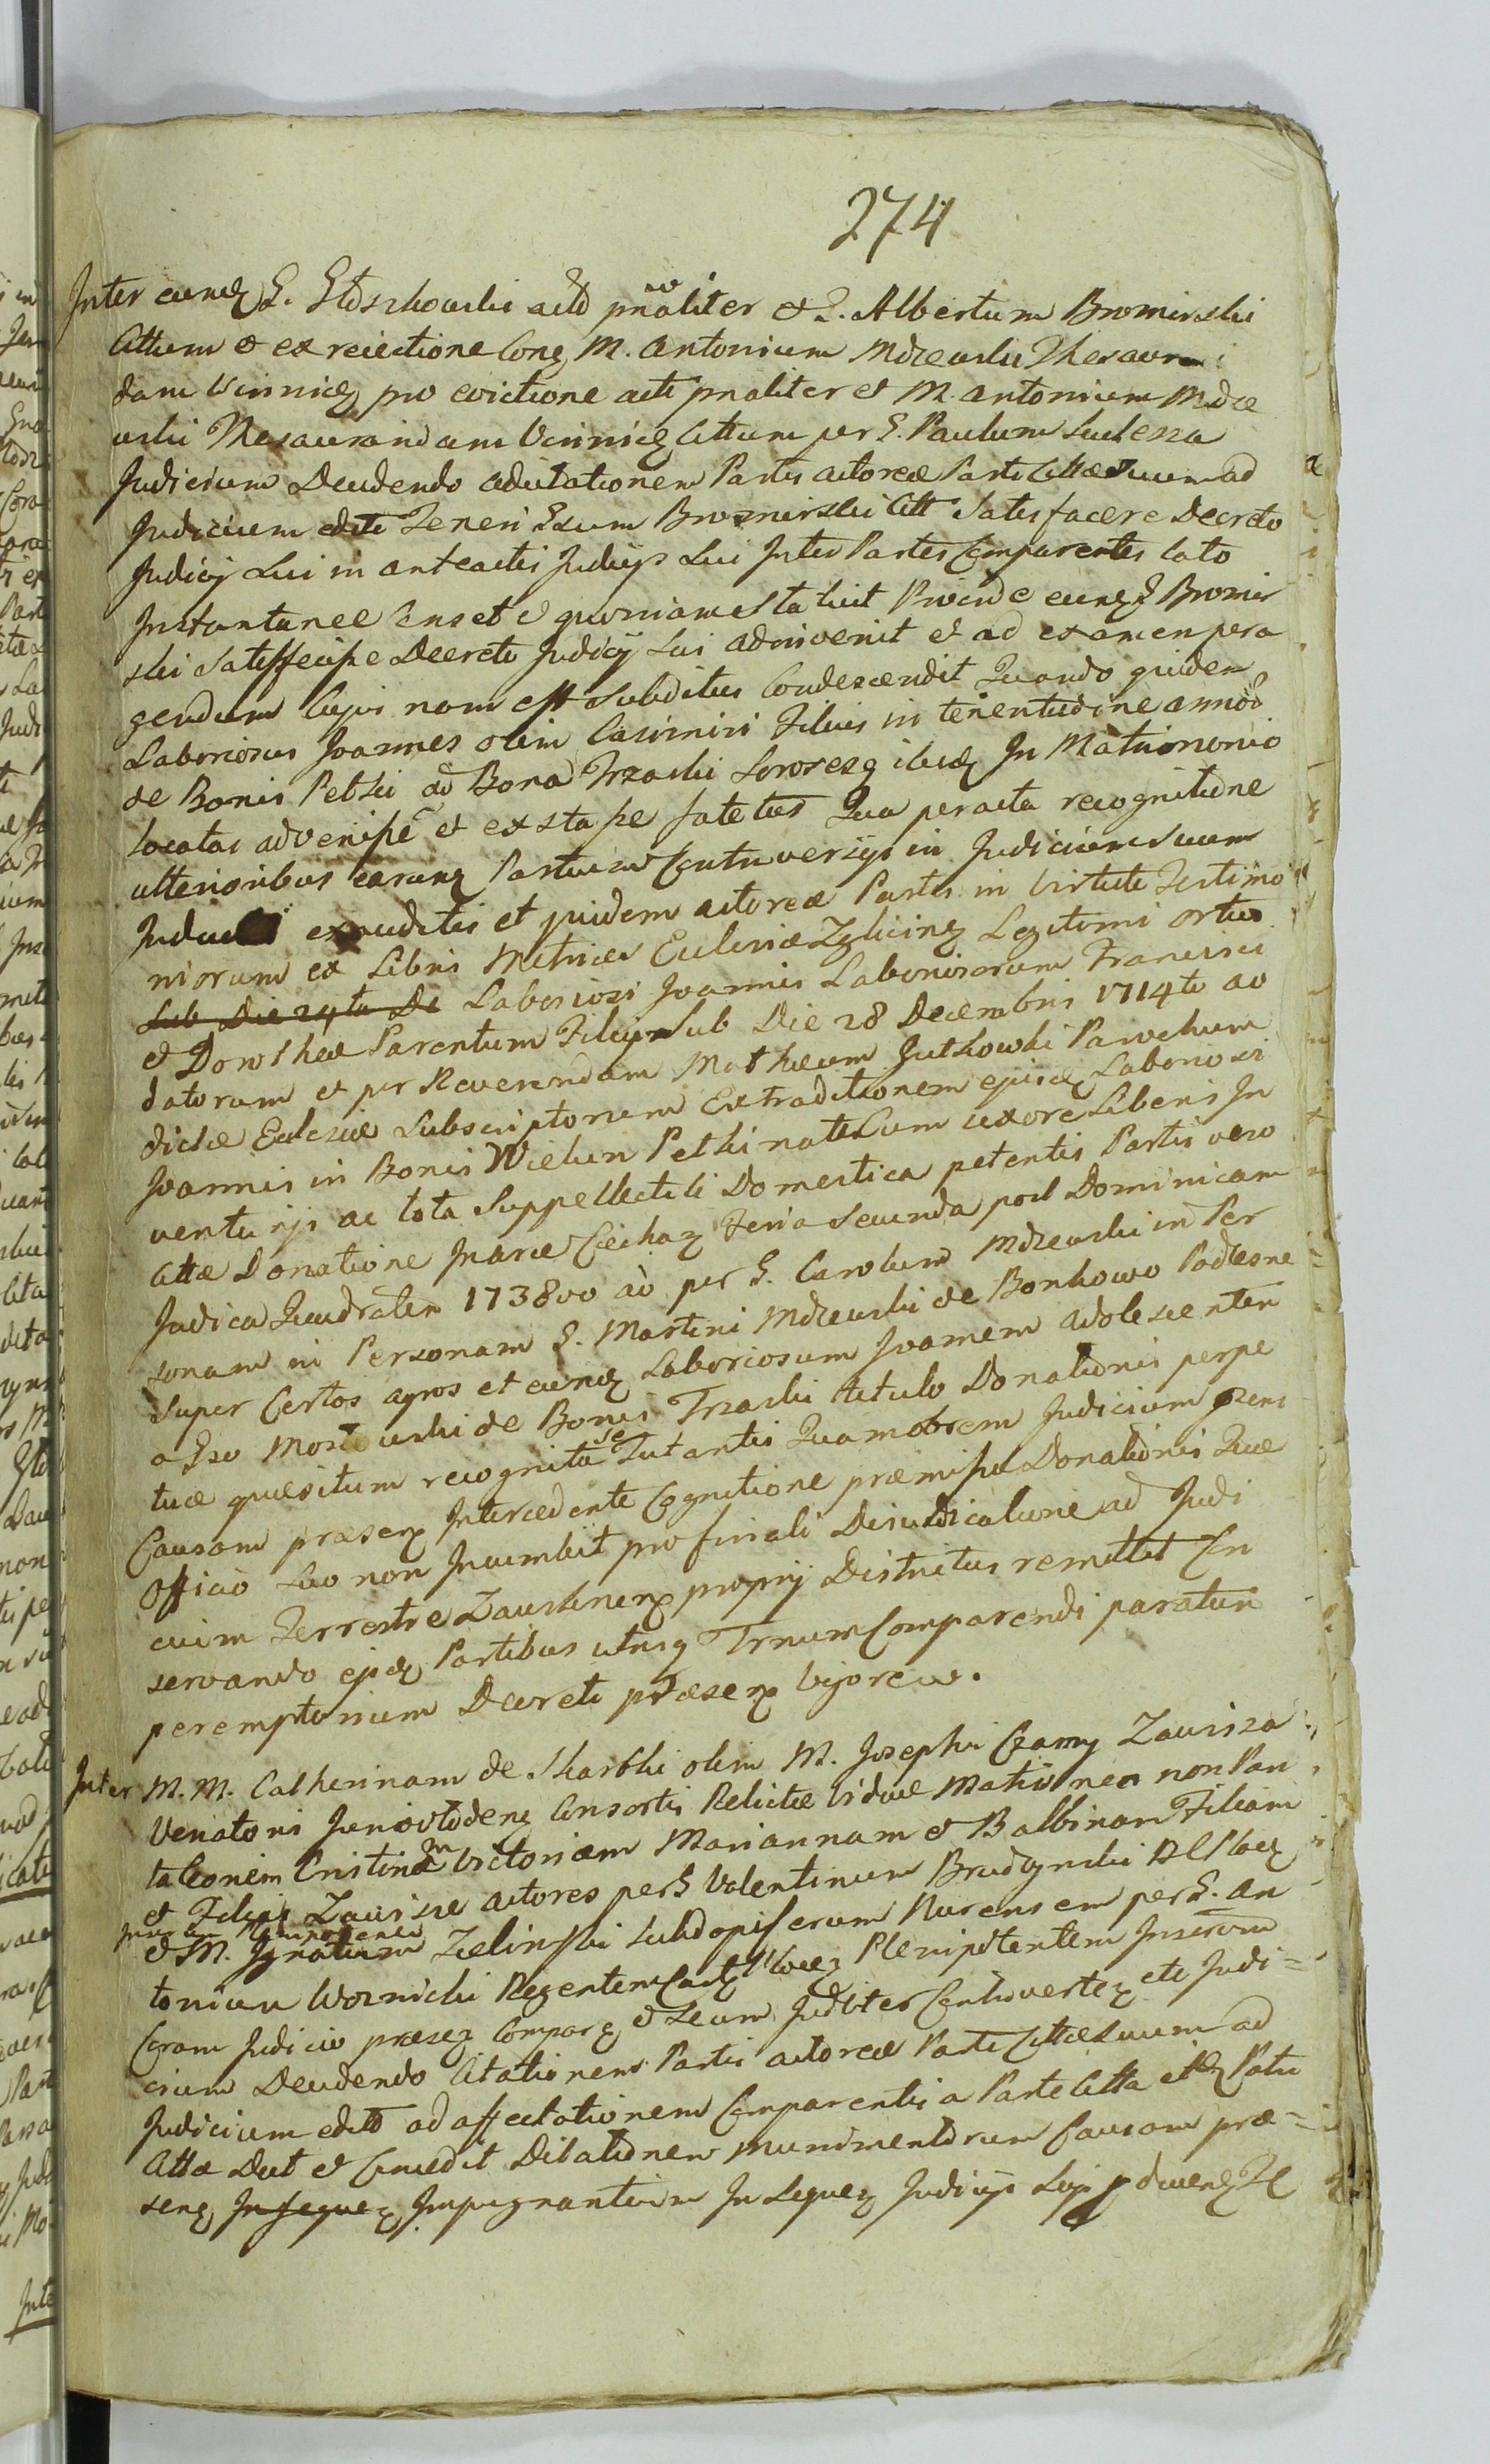 274
Inter eundem G. Stoszkowski acto pnaliter et G. Albertum Bromirski
Cittum et ex reiectione Conq M. Antonium Mdzewski Thesaura
dam Vinnicen pro evictione acti pnaliter et M. Antonium Mdze
wski Thesauraridam Vinnicen Cittum per G. Paulum
Judicium Decudendo adcitationem Partis actoreæ Parti Cittæ Suum ad
Judicium editi Teneri Gsum Bromirski Citt Satisfacere Decreto
Judicij Sui in anteactis Judicijs Sui Inter Partes Comparentes Lato
Instantanee Censet et quoniam Statuit Proinde eundem G Bromir
ski Satisfecisse Decreto Judicij Sui adinvenit et ad examen pera
gendum Cujus nam est Subditus Condescendit Quando quidem
Laboriosus Joannes olim Casimiri Filius in tenentudine
de Bonis Petki ad Bona Trzaski Sorores ibidq In Matrimonio
locatas advenisse et exstasse fatetur Qua peracta recognitione
ulterioribus earunq Partium Controversijs in Judicium Suum
exauditis et quidem actoreæ Partis in Virtute Testimo
niorum ex Libris Metrices Ecclesiæ Zglicinen Legitimi ortus
Sub Die 24ta De Laboriosi Joannis Laboriosorum Francisci
et Dorotheæ Parentum Filij Sub Die 28 Decembris 1714to ao
datorum et per Reverendum Mathæum Gutkowski Parochum
dictæ Ecclesiæ Subscriptorum Extraditionem ejusdem Laboriosi
Joannis in Bonis Wielun Petki nati Cum uxore Liberis In
ventarijs ac tota Suppellectili Domestica petentis Partis vero
Cittæ Donatione In arce Ciechan Feria Secunda post Dominicam
Judica Quadralem 173800 ao per G. Carolum Mdzewski in Per
sonam in Personam G. Martini Mdzewski de Bonkowo Podlesne
Super Certos agros et eundem Laboriosum Joannem adolescentem
a Gso Mostowski de Bonis Trzaski titulo Donationis perpe
tuæ quæsitum recognita se Tutantis Quamobrem Judicium
Causam præsen Intercedente Cognitione præmissæ Donationis Quæ
Officio Suo non Incumbit pro finali Dijudicatione ad Judi
cium Terrestre Zawskrnen proprij Districtus remittit Con
servando ejsdq Partibus utrisq Trnum Comparendi paratum
peremptorium Decreti præsen Vigore.
Inter M. M. Catherinam de Skarbki olim M. Josephi Czarny Zawisza
Venatoris Consortis Relictæ Viduæ Matronea non Pan
taleonem Cristinam Victoriam Mariannam et Balbinam Filiam
et Filios Zawisze actores per G Valentinum Brudzynski
et M. Ignatium Zielinski Subdapiferum Nurensem per G. An
tonium Woznicki Regentem Plenipotentem Inscrom
Coram Judicio præsen Comparen et Secum Judbter Controverten etc Judi=
cium Decudendo Citationem Partis actoreæ Parti Cittæ Suum ad
Judicium editto ad affectationem Comparentis a Parte Citta eidem Parti
Cittæ Dat et Concedit Dilationem Munimentorum Causam præ=
sen Insequen Impugnantium In Sequen Judicijs Suis